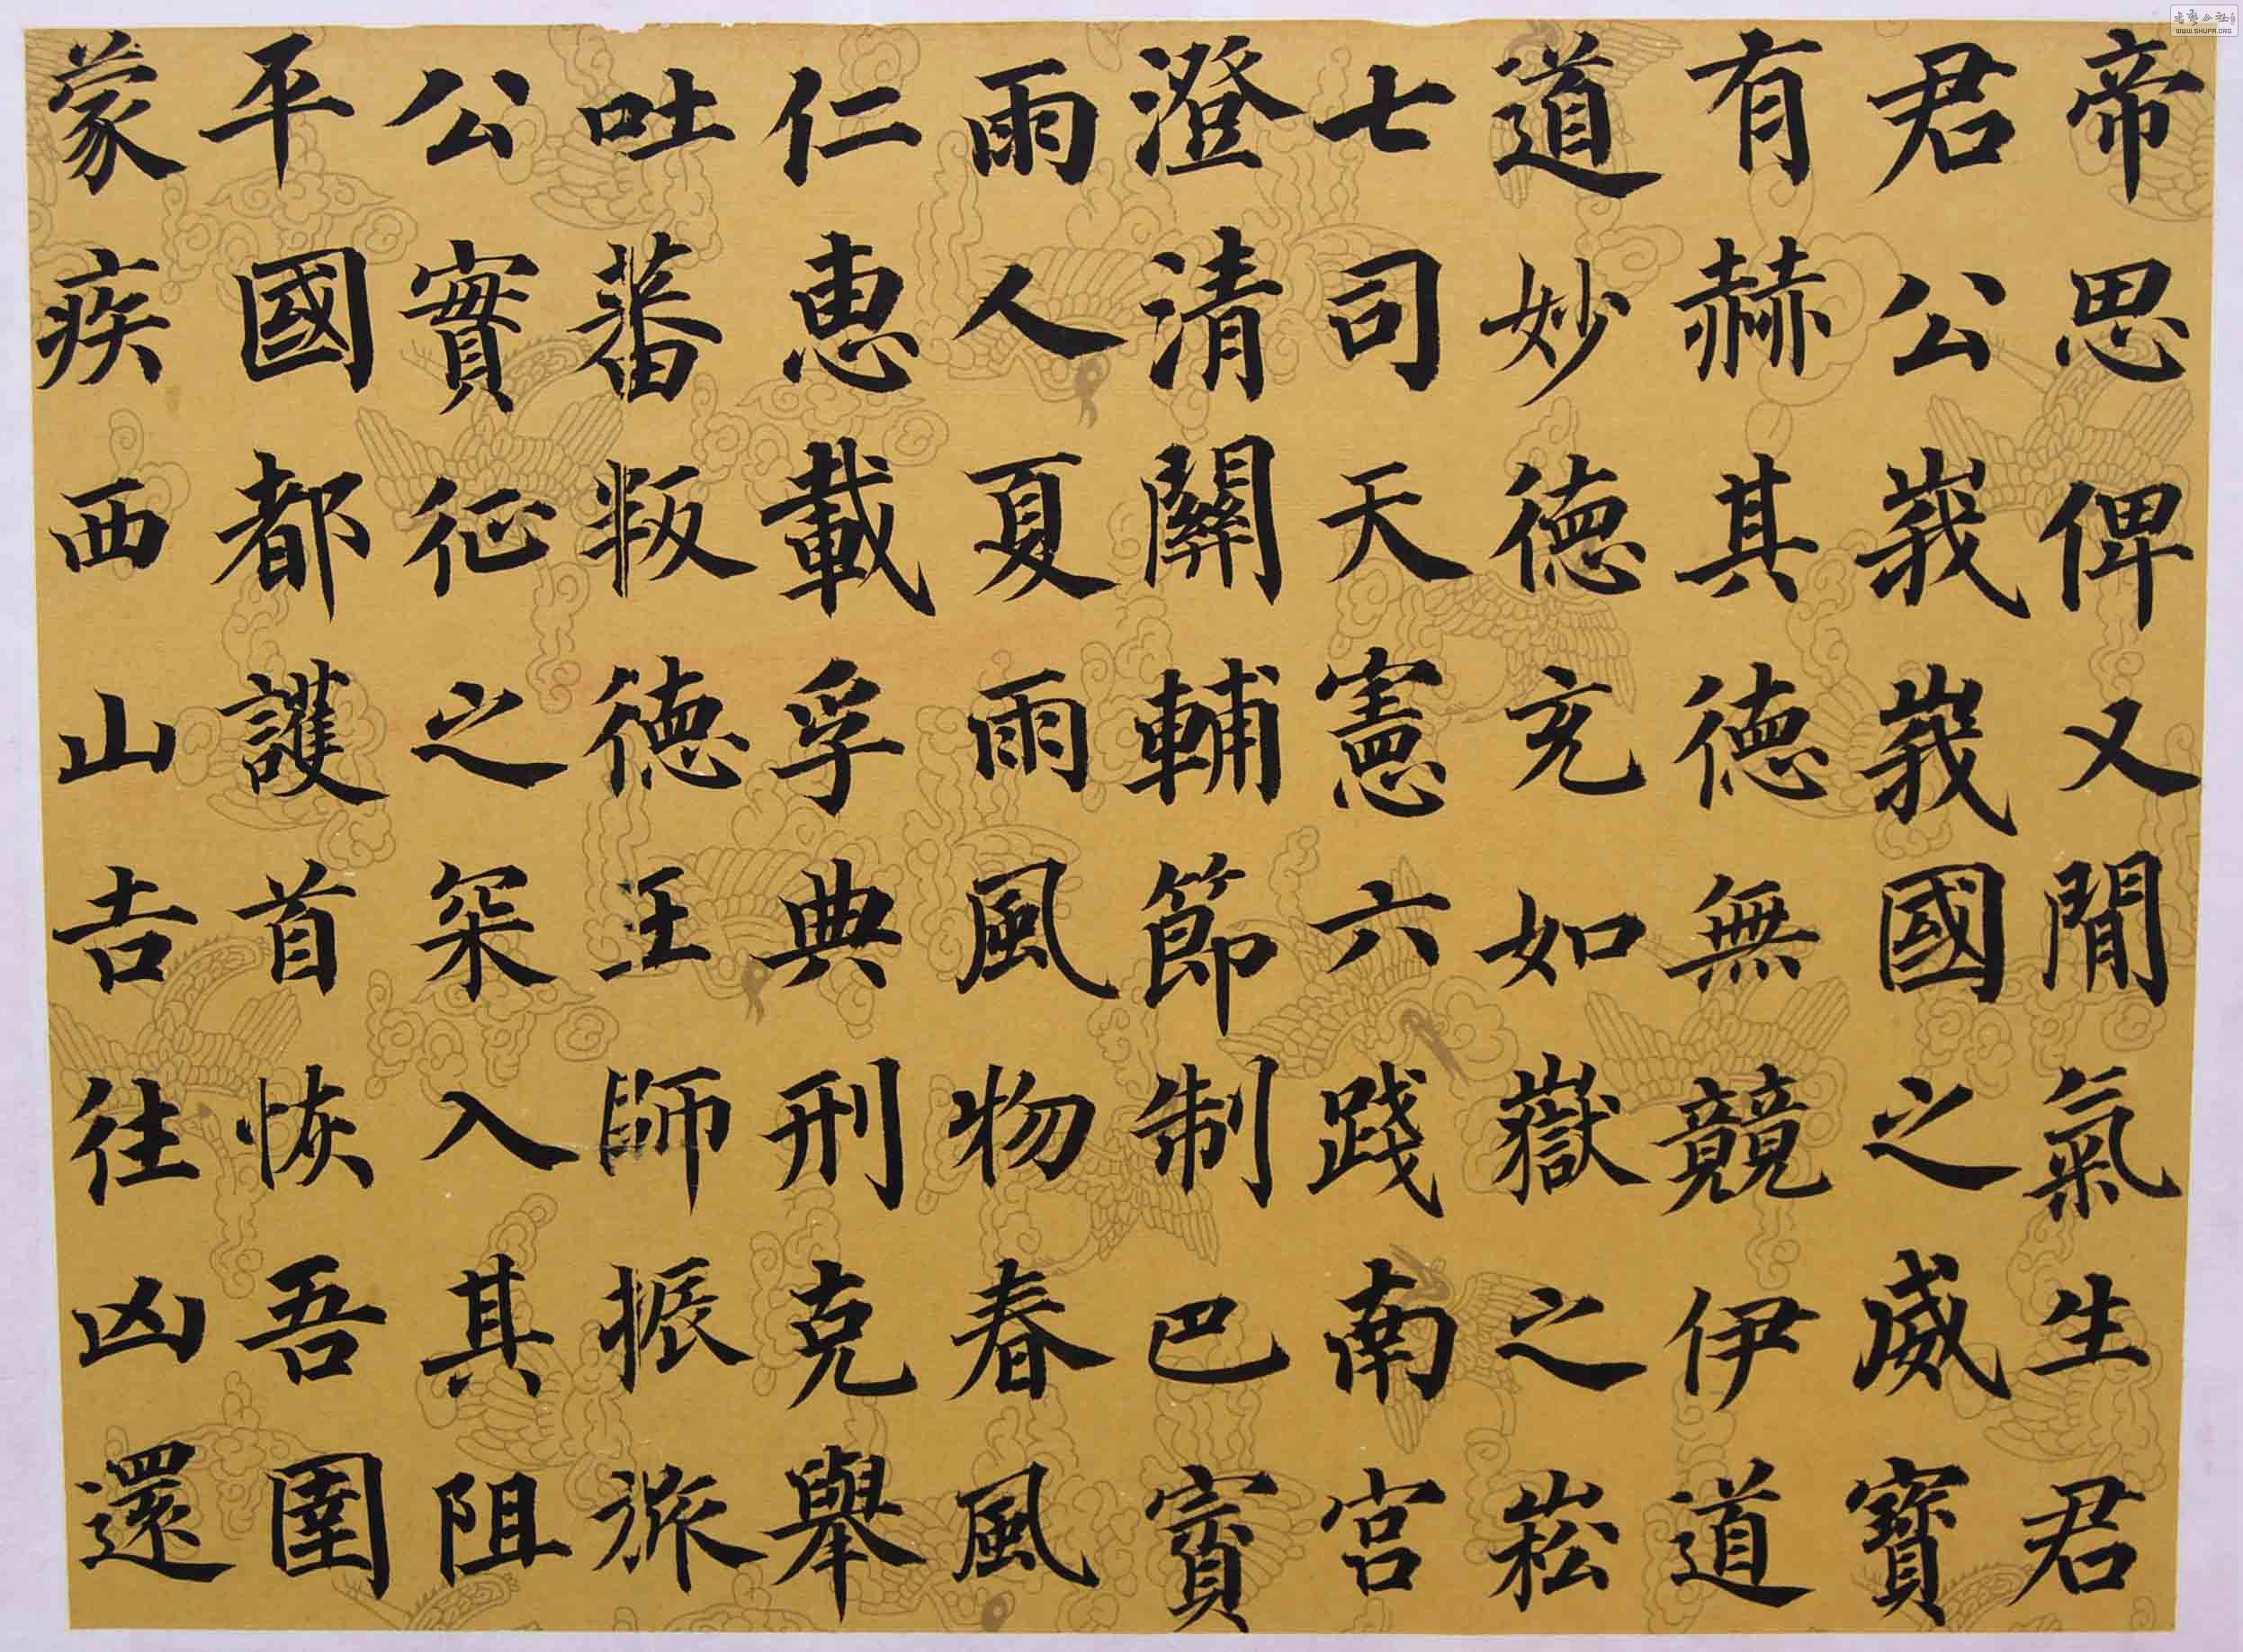 帝思俾又閒氣生君
君公峩峩國之威寶
有赫其德無競伊道
道妙德充如嶽之崧
七司天憲六踐南宮
澄清關輔節制巴賔
雨人夏雨風物春風
仁惠載孚典刑克舉
吐蕃叛德王師振旅
公實征之罙入其阻
平國都護首恢吾圉
蒙疾西山吉往凶還
WWW.SHUFA.ORG